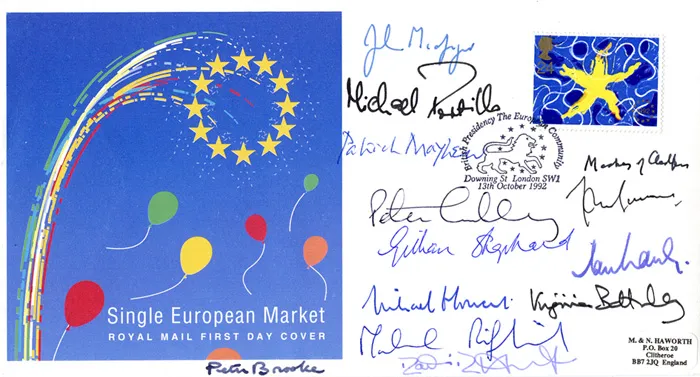 Single European Market
ROYAL MAIL FIRST DAY COVER
Peter Brooke
John Major
Michael Portillo
Patrick Mayhew
British Presidency The European Community
Downing St London SW1
13th October 1992
Peter
Gillian Shephard
Michael Howard
Virginia Bottomley
Malcolm Rifkind
M. & N. HAWORTH
P.O. Box 20
Clitheroe
BB7 2JQ England